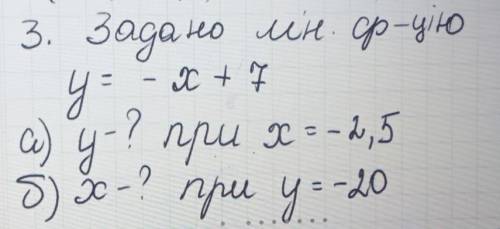 3. Задано лін. ф-цію
y = - x + 7
а) y - ? при x = -2,5
б) x - ? при y = -20